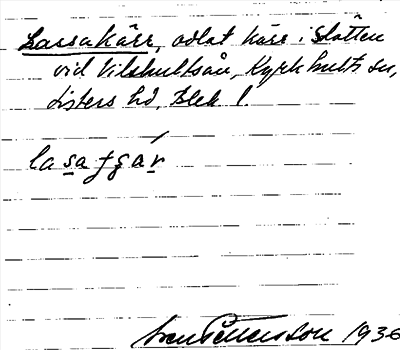 Lassakärr, odlat kärr i Slätten
vid Vilshultsån, Kyrkhults sn,
Listers hd, Blek l.
lasafgár
Sven Pettersson 1936